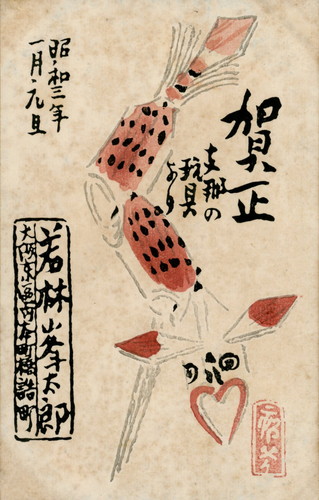 賀正
支那の
玩具
より
昭和三年
一月元旦
若林孝太郎
大阪東區内本町橋詰町